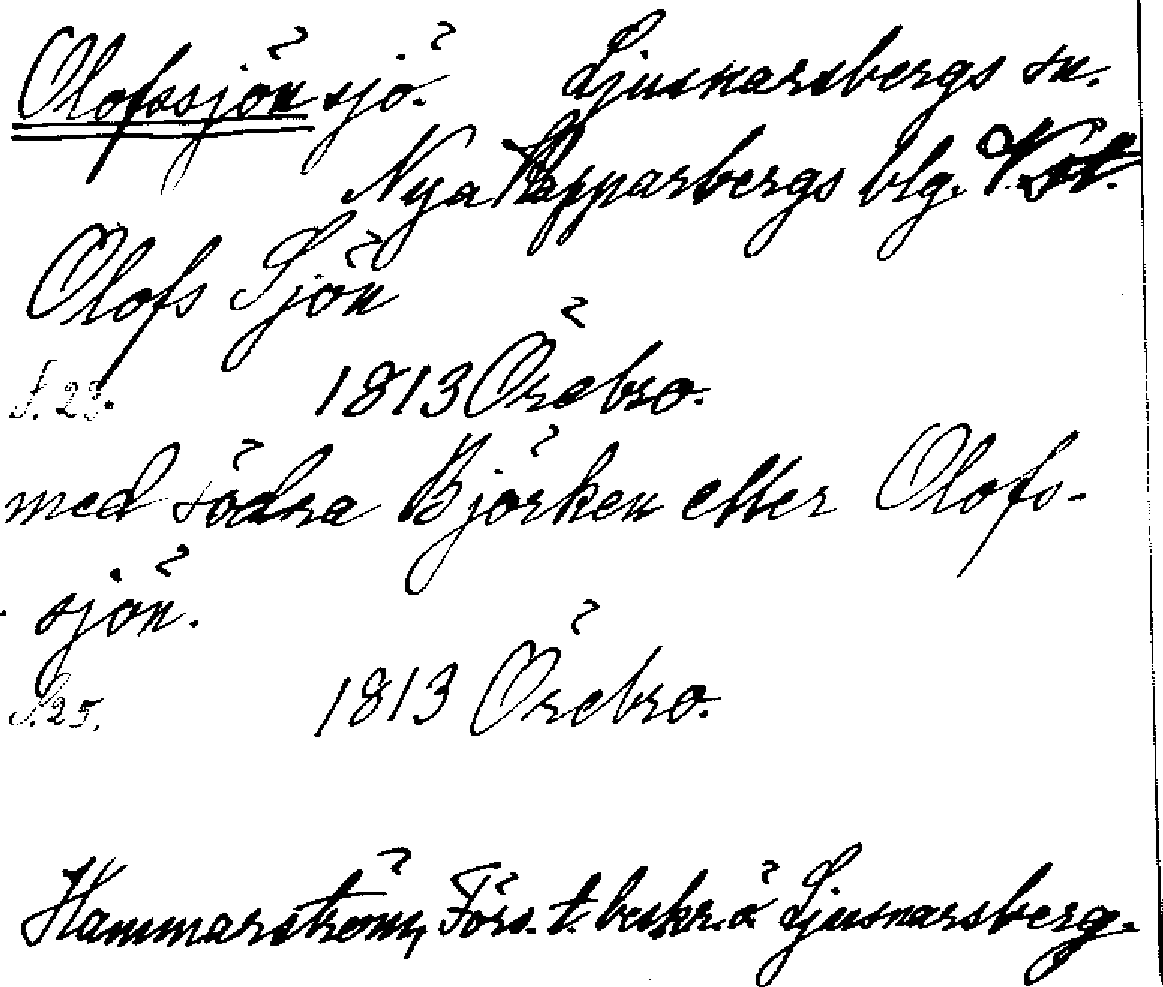 Olofssjön sjö. Ljusnarsbergs sn.
Nya Kopparbergs blg. Vst.
Olofs Sjön
S. 23. 1813 Örebro.
med södra Björken eller Olofs-
sjön.
S. 25. 1813 Örebro.
Hammarström, Förs. t. beskr. å Ljusnarsberg.